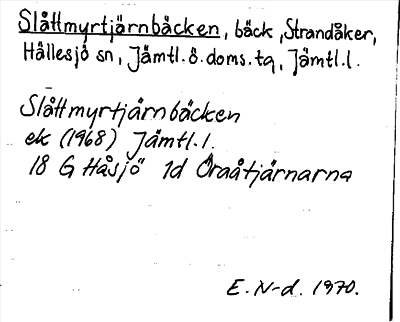 Slåttmyrtjärnbäcken, bäck, Strandåker,
Hällesjö sn, Jämtl.ö.doms.tg, Jämtl.l.
Slåttmyrtjärnbäcken
ek (1968) Jämtl.l.
18 G Håsjö 1d Öraåtjärnarna
E.N-d. 1970.